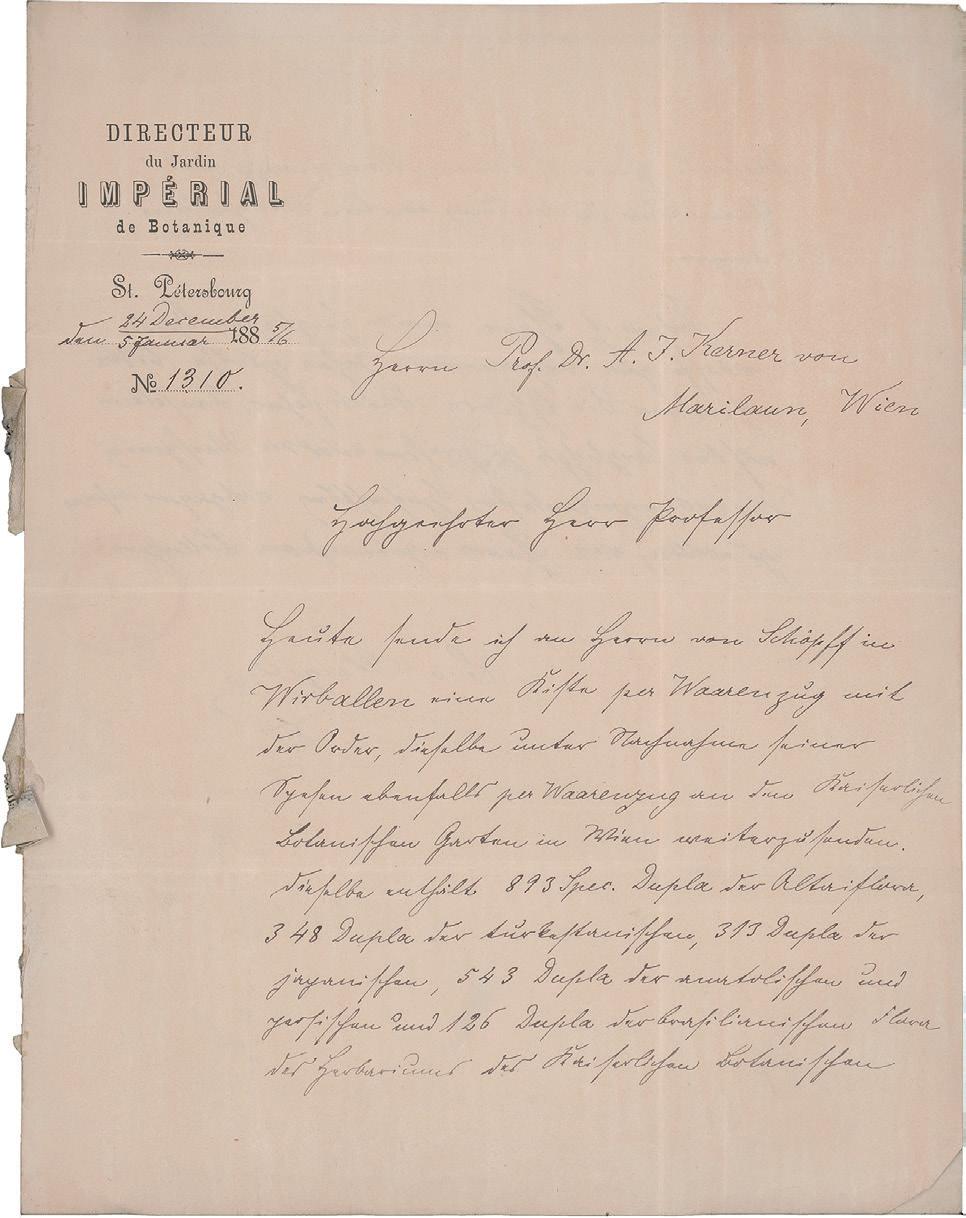 DIRECTEUR
du Jardin
IMPÉRIAL
de Botanique
St. Pétersbourg
den 24 December / 5 Januar 1885/6
№ 1310.
Herrn Prof. Dr. A. J. Kerner von
Marilaun, Wien
Hochgeehrter Herr Professor
Heute sende ich an Herrn von Schöpff in
Wirballen eine Kiste per Waarenzug mit
der Order, dieselbe unter Nachnahme seiner
Spesen ebenfalls per Waarenzug an den Kaiserlichen
Botanischen Garten in Wien weiterzusenden.
dieselbe enthält 893 Spec. Dupla der Altaiflora,
348 Dupla der turkestanischen, 313 Dupla der
japanischen, 543 Dupla der anatolischen und
persischen und 126 Dupla der brasilianischen Flora
des Herbariums des Kaiserlichen Botanischen